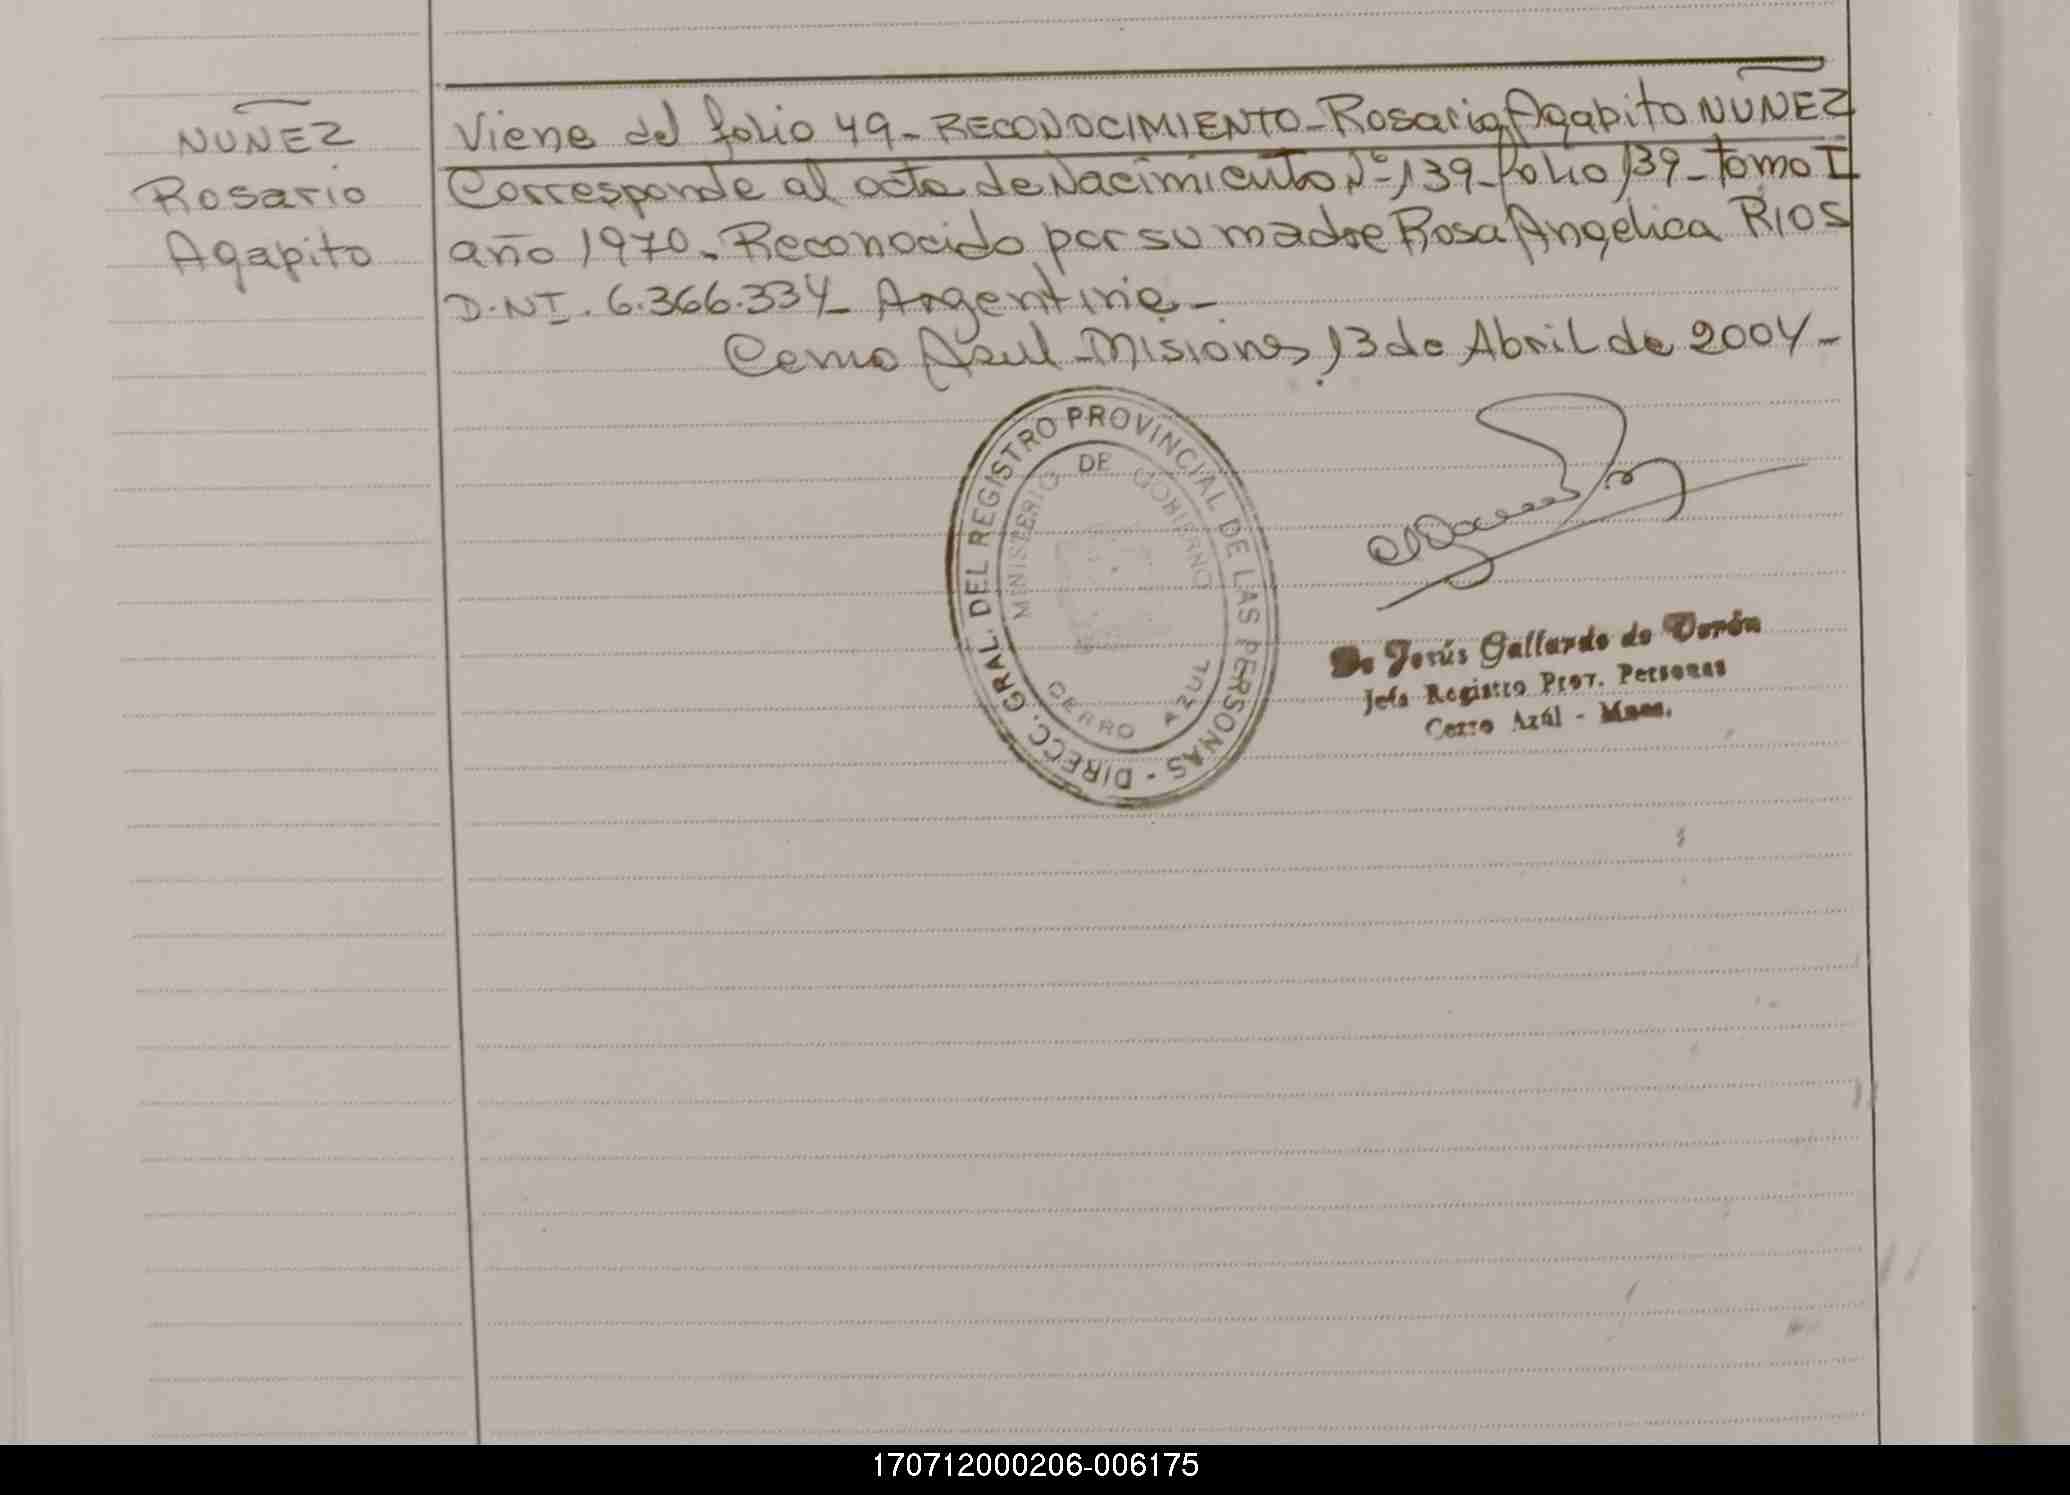 NUÑEZ
Rosario
Agapito
Viene del folio 49 - RECONOCIMIENTO - Rosario Agapito NUÑEZ
Corresponde al acta de Nacimiento Nº 139 - folio 139 - Tomo I
año 1970. Reconocido por su madre Rosa Angélica RIOS
D.NI. 6.366.334 - Argentina -
Cerro Azul - Misiones, 13 de Abril de 2004 -
DIRECC. GRAL. DEL REGISTRO PROVINCIAL DE LAS PERSONAS -
MINISTERIO DE GOBIERNO
CERRO AZUL
De Jesús Gallardo de Verón
Jefa Registro Prov. Personas
Cerro Azúl - Mnes.
170712000206-006175